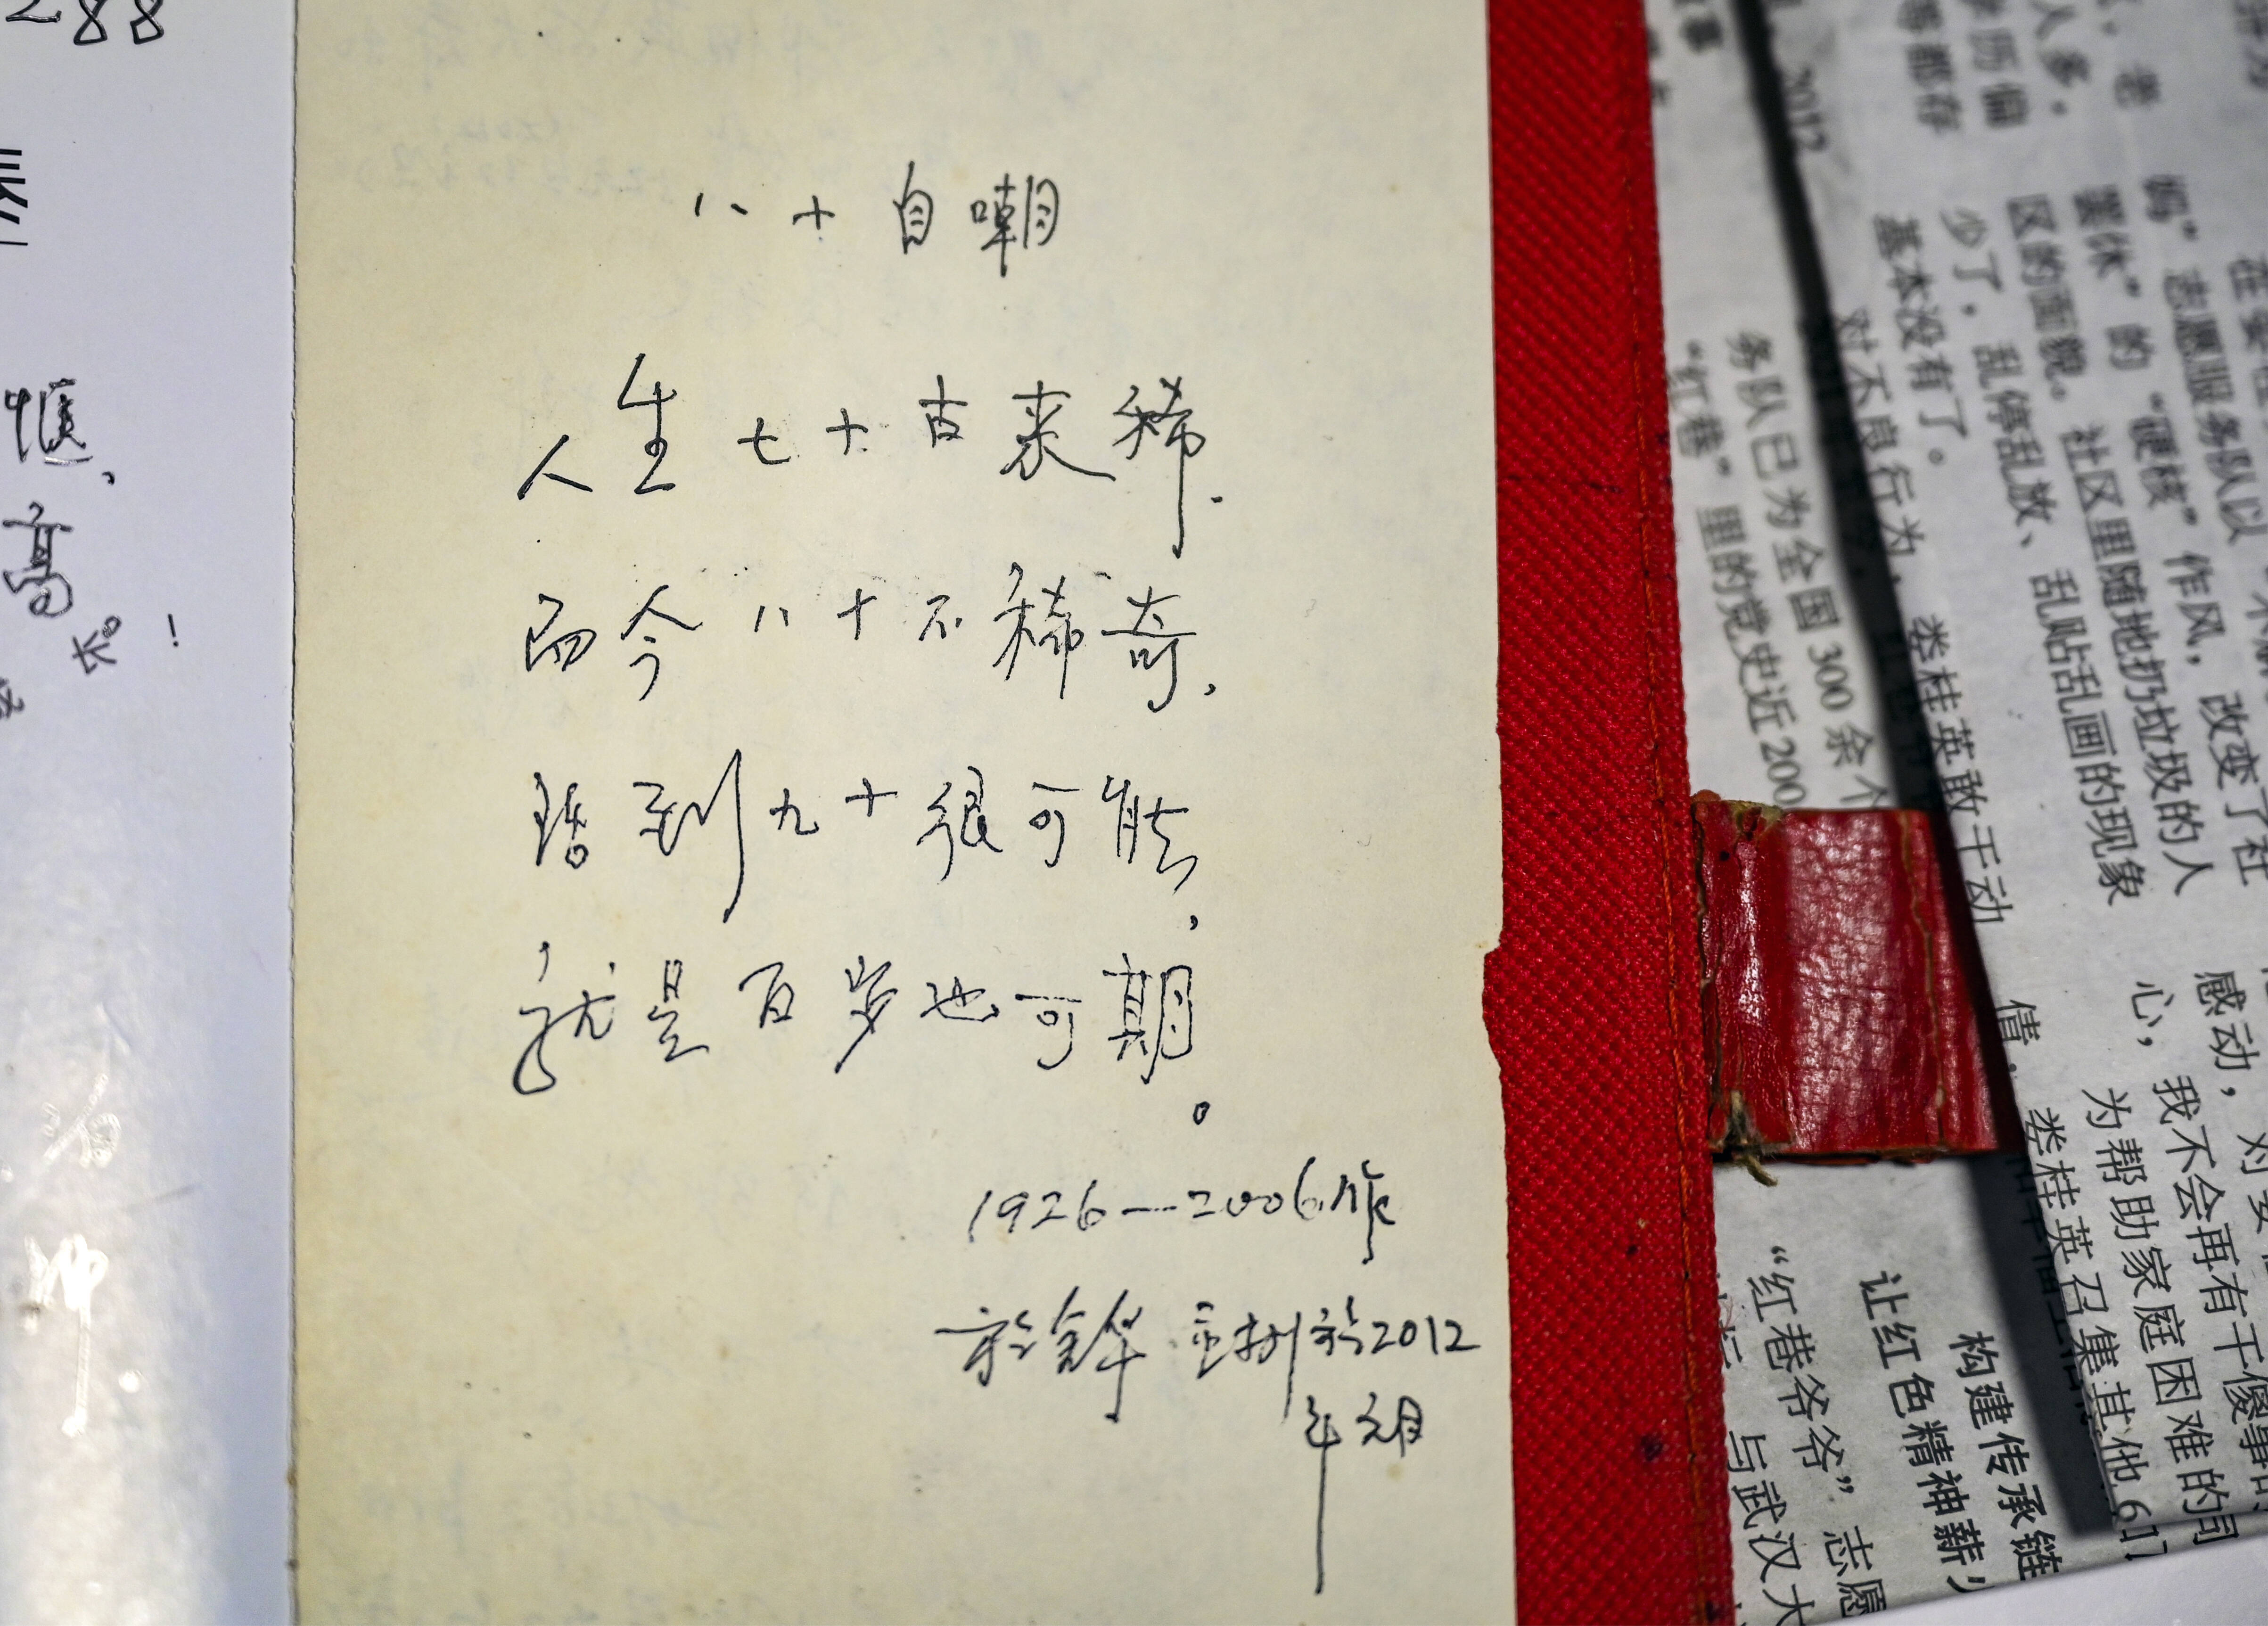 288
慨,
高
长。!
八十自嘲
人生七十古来稀.
而今八十不稀奇,
活到九十很可能,
就是百岁也可期。
1926—2006作
于2012
年元月
2012
务队已为全国300余个
“红巷”里的党史近200
“红巷爷爷”志愿
与武汉大
构建传承链
让红色精神薪
学历偏
等都存
妈”志愿服务队以
罢休”的“硬核”作风,改变了社
区的面貌。社区里随地扔垃圾的人
少了,乱停乱放、乱贴乱画的现象
基本没有了。
对不良行为,娄桂英敢于动
感动,对娄
心,我不会再有干傻事
为帮助家庭困难的同
娄桂英召集其他6